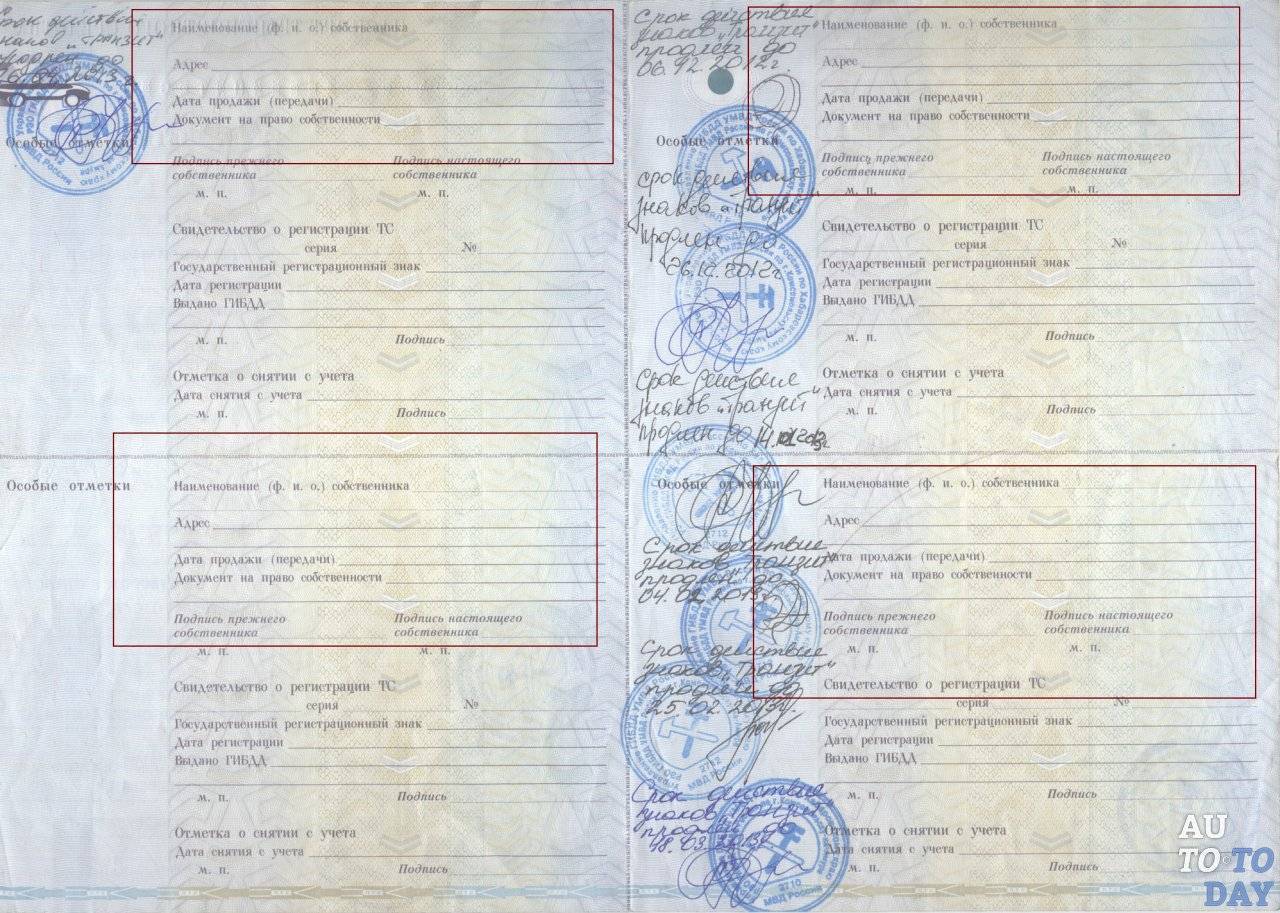 Срок действия
знаков „Транзит"
продлен до
Особые отметки
Наименование (ф. и. о.) собственника
Адрес
Дата продажи (передачи)
Документ на право собственности
Подпись прежнего собственника
Подпись настоящего собственника
м. п. м. п.
Свидетельство о регистрации ТС
серия №
Государственный регистрационный знак
Дата регистрации
Выдано ГИБДД
м. п. Подпись
Отметка о снятии с учета
Дата снятия с учета
м. п. Подпись
Срок действие
знаков „Транзит"
продлен до
06.12.2012г.
Особые отметки
срок действие
знаков „Транзит"
продлен до
26.12.2012г
Срок действие
знаков „Транзит"
продлен до 14.
Наименование (ф. и. о.) собственника
Адрес
Дата продажи (передачи)
Документ на право собственности
Подпись прежнего собственника
Подпись настоящего собственника
м. п. м. п.
Свидетельство о регистрации ТС
серия №
Государственный регистрационный знак
Дата регистрации
Выдано ГИБДД
м. п. Подпись
Отметка о снятии с учета
Дата снятия с учета
м. п. Подпись
Особые отметки
Наименование (ф. и. о.) собственника
Адрес
Дата продажи (передачи)
Документ на право собственности
Подпись прежнего собственника
Подпись настоящего собственника
м. п. м. п.
Свидетельство о регистрации ТС
серия №
Государственный регистрационный знак
Дата регистрации
Выдано ГИБДД
м. п. Подпись
Отметка о снятии с учета
Дата снятия с учета
м. п. Подпись
Особые отметки
Срок действие
знаков „Транзит"
продлен до
04.02.2013г.
Срок действие
знаков „Транзит"
продлен до
25.02.2013г.
Срок действие
знаков „Транзит"
продлен до
18.03.2013г
2712
МВД России
2710
МВД России
Наименование (ф. и. о.) собственника
Адрес
Дата продажи (передачи)
Документ на право собственности
Подпись прежнего собственника
Подпись настоящего собственника
м. п. м. п.
Свидетельство о регистрации ТС
серия №
Государственный регистрационный знак
Дата регистрации
Выдано ГИБДД
м. п. Подпись
Отметка о снятии с учета
Дата снятия с учета
м. п. Подпись
AU
TO©TO
DAY